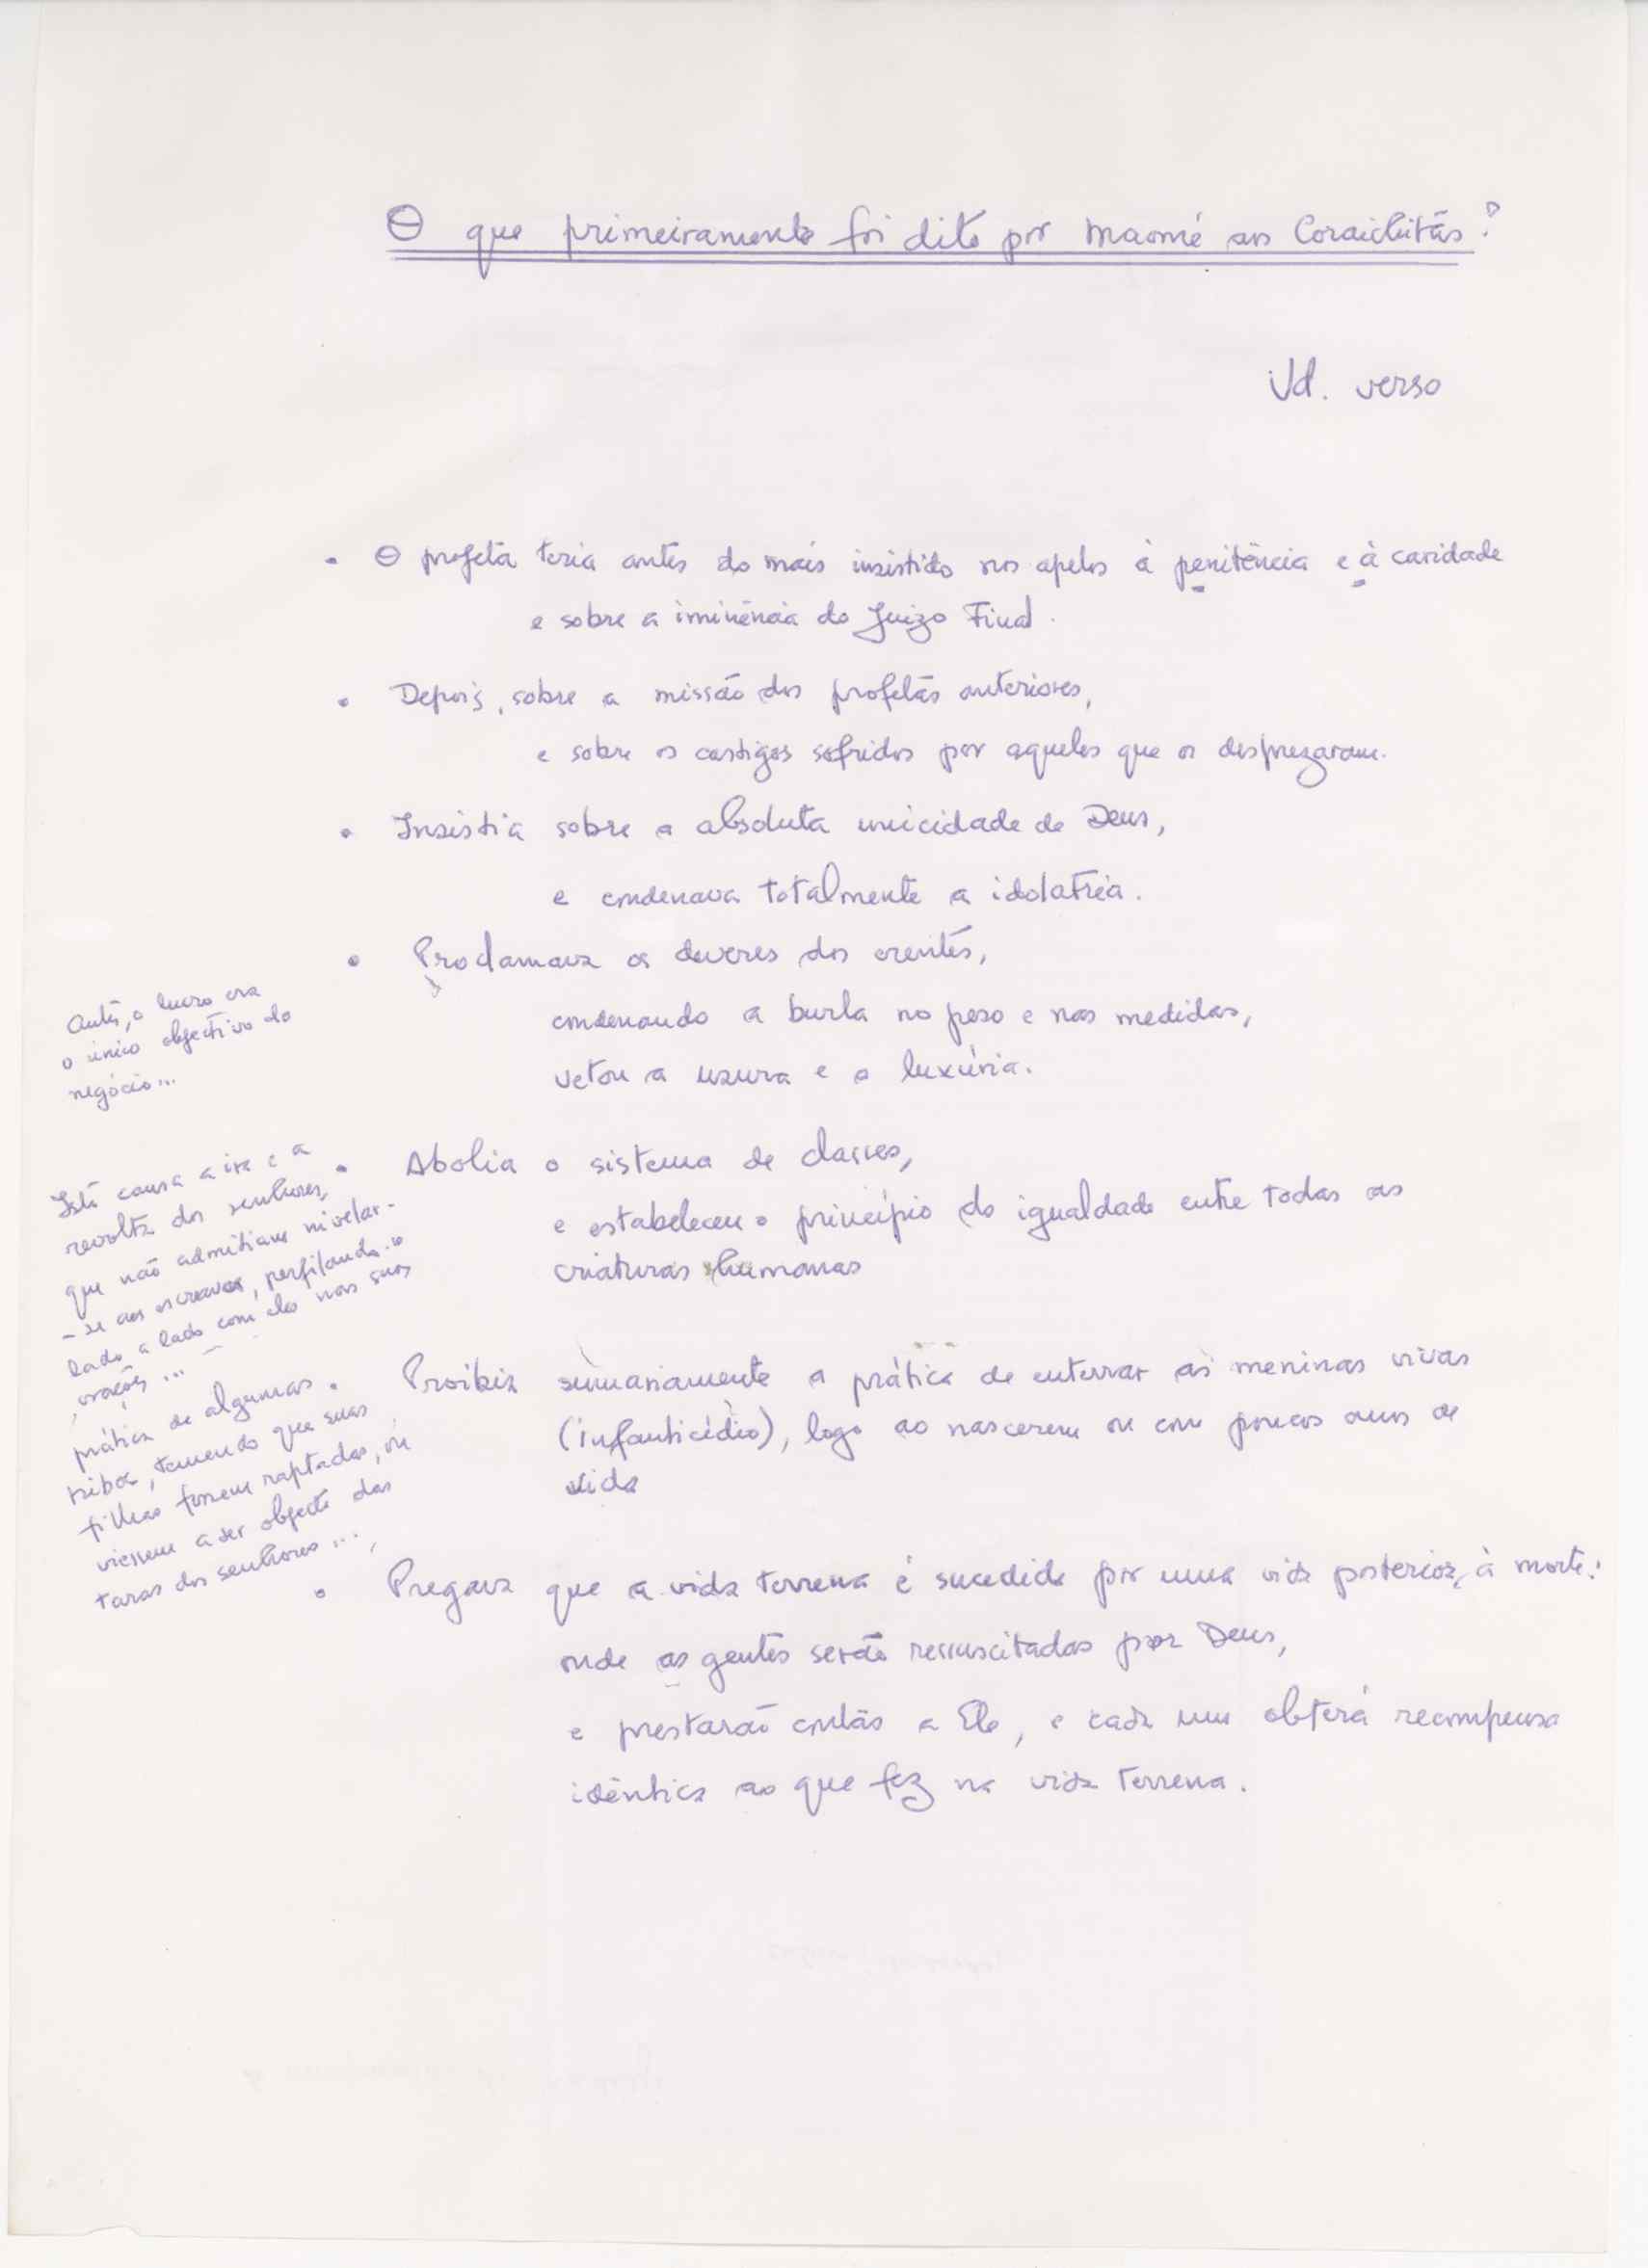 O que primeiramente foi dito por Maomé aos Coraichitas?
Vd. verso
• O profeta teria antes do mais insistido nos apelos à penitência e à caridade
e sobre a iminência do Juizo Final.
• Depois, sobre a missão dos profetas anteriores,
e sobre os castigos sofridos por aqueles que os desprezaram.
• Insistia sobre a absoluta unicidade de Deus,
e condenava totalmente a idolatria.
• Proclamava os deveres dos crentes,
condenando a burla no peso e nas medidas,
vetou a usura e a luxúria.
Antes, o lucro era
o único objectivo do
negócio...
• Abolia o sistema de classes,
e estabeleceu o princípio da igualdade entre todas as
criaturas humanas
Isto causa a ira e a
revolta dos senhores,
que não admitiam nivelar-
-se aos escravos, perfilando-se
lado a lado com eles nas suas
orações...
• Proibia sumariamente a prática de enterrar as meninas vivas
(infanticídio), logo ao nascerem ou com poucos anos de
vida
prática de algumas
tribos, temendo que suas
filhas fossem raptadas, ou
viessem a ser objecto das
taras dos senhores...
• Pregava que a vida terrena é sucedida por uma vida posterior à morte:
onde as gentes serão ressuscitadas por Deus,
e prestarão contas a Ele, e cada um obterá recompensa
idêntica ao que fez na vida terrena.